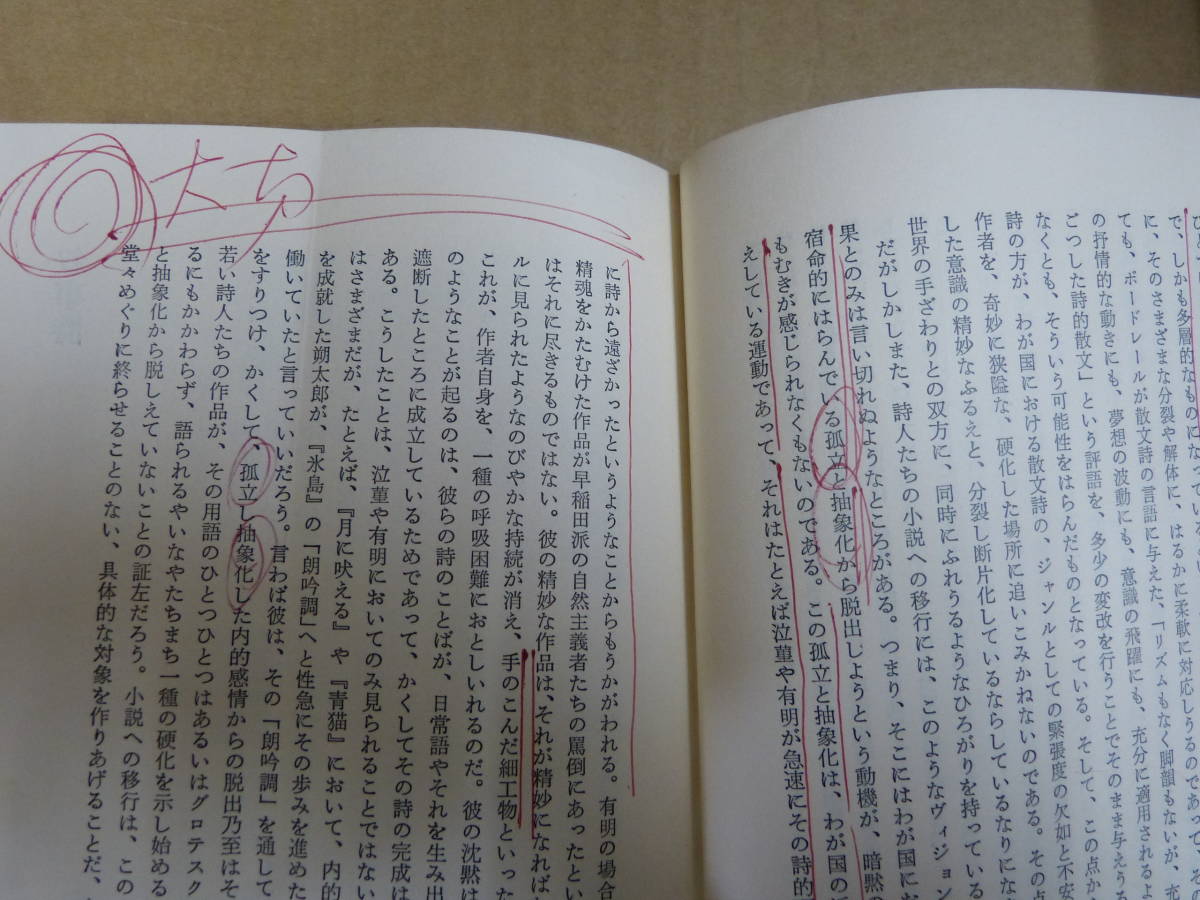 で、しかも多層的なものになっている
に、そのさまざまな分裂や解体に、はるかに柔軟に対応しうるのであって、
ても、ボードレールが散文詩の言語に与えた、「リズムもなく脚韻もないが、充
の抒情的な動きにも、夢想の波動にも、意識の飛躍にも、充分に適用されるよ
ごつした詩的散文」という評語を、多少の変改を行うことでそのまま与えうる
なくとも、そういう可能性をはらんだものとなっている。そして、この点か
詩の方が、わが国における散文詩の、ジャンルとしての緊張度の欠如と不安
作者を、奇妙に狭隘な、硬化した場所に追いこみかねないのである。その点
した意識の精妙なふるえと、分裂し断片化しているならしているなりにな
世界の手ざわりとの双方に、同時にふれうるようなひろがりを持っている
だがしかしまた、詩人たちの小説への移行には、このようなヴィジョン
果とのみは言い切れぬようなところがある。つまり、そこにはわが国にお
宿命的にはらんでいる孤立と抽象化から脱出しようという動機が、暗黙の
もむきが感じられなくもないのである。この孤立と抽象化は、わが国の
えしている運動であって、それはたとえば泣菫や有明が急速にその詩的
大切
に詩から遠ざかったというようなことからもうかがわれる。有明の場合
精魂をかたむけた作品が早稲田派の自然主義者たちの罵倒にあったとい
はそれに尽きるものではない。彼の精妙な作品は、それが精妙になれば
ルに見られたようなのびやかな持続が消え、手のこんだ細工物といった
これが、作者自身を、一種の呼吸困難におとしいれるのだ。彼の沈黙は
のようなことが起るのは、彼らの詩のことばが、日常語やそれを生み出
遮断したところに成立しているためであって、かくしてその詩の完成は
ある。こうしたことは、泣菫や有明においてのみ見られることではない
はさまざまだが、たとえば、『月に吠える』や『青猫』において、内的
を成就した朔太郎が、『氷島』の「朗吟調」へと性急にその歩みを進めた
働いていたと言っていいだろう。言わば彼は、その「朗吟調」を通して
をすりつけ、かくして、孤立し抽象化した内的感情からの脱出乃至はそ
若い詩人たちの作品が、その用語のひとつひとつはあるいはグロテスク
るにもかかわらず、語られるやいなやたちまち一種の硬化を示し始める
と抽象化から脱しえていないことの証左だろう。小説への移行は、この
堂々めぐりに終らせることのない、具体的な対象を作りあげることだ、